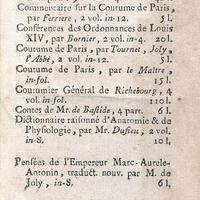 Commentaire sur la Coutume de Paris,
par Ferriere, 2 vol. in-12. 5 l.
Conférences des Ordonnances de Louis
XIV, par Bornier, 2 vol. in-4. 20 l.
Coutume de Paris, par Tournet, Joly,
l'Abbé, 2 vol. in-12. 5 l.
Coutume de Paris, par le Maître
in-fol. 15 l.
Coutumier Général de Richebourg, 4
vol. in-fol. 110 l.
Contes de Mr. de Bastide, 4 part. 6 l.
Dictionnaire raisonné d'Anatomie & de
Physiologie, par Mr. Dufieu, 2 vol.
in-8. 10 l.
Pensées de l'Empereur Marc-Aurele-
Antonin, traduct. nouv. par M. de
Joly, in-8. 6 l.